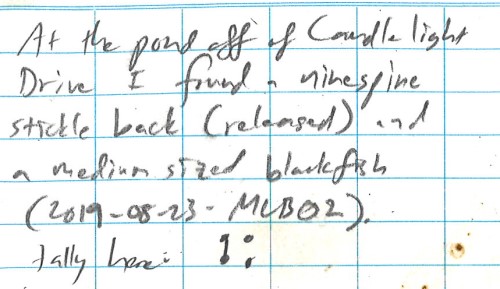 At the pond off of Candle light
Drive I found a ninespine
stickle back (released) and
a medium sized blackfish
(2019-08-23-MLB02).
tally here: 1: